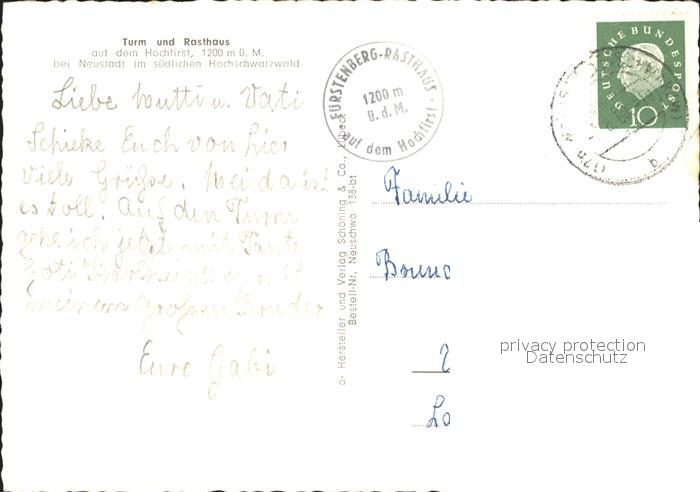 Turm und Rasthaus
auf dem Hochfirst, 1200 m ü. M.
bei Neustadt im südlichen Hochschwarzwald
Liebe Mutti u. Vati
Schicke Euch von hier
viele Grüße. Hei da ist
es toll. Auf den Turm
gehe ich jetzt mit Tante
Goti u. mit
meinem großen Bruder
Eure Gabi
FÜRSTENBERG-RASTHAUS
1200 m
ü. d. M.
auf dem Hochfirst
Hersteller und Verlag Schöning & Co., Lübeck
Bestell-Nr. Neuschwa 138-b1
DEUTSCHE BUNDESPOST
10
Familie
Bruno
Lo
privacy protection
Datenschutz